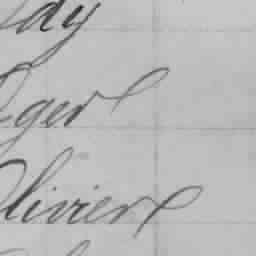 dy
ger
Olivier